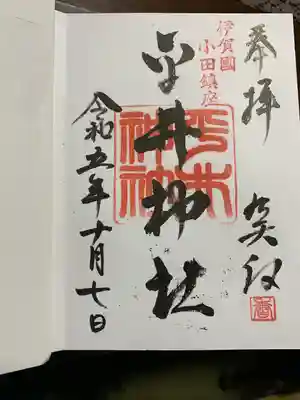 奉拝
伊賀國
小田鎮座
平井神社
平井
神社
令和五年十月七日